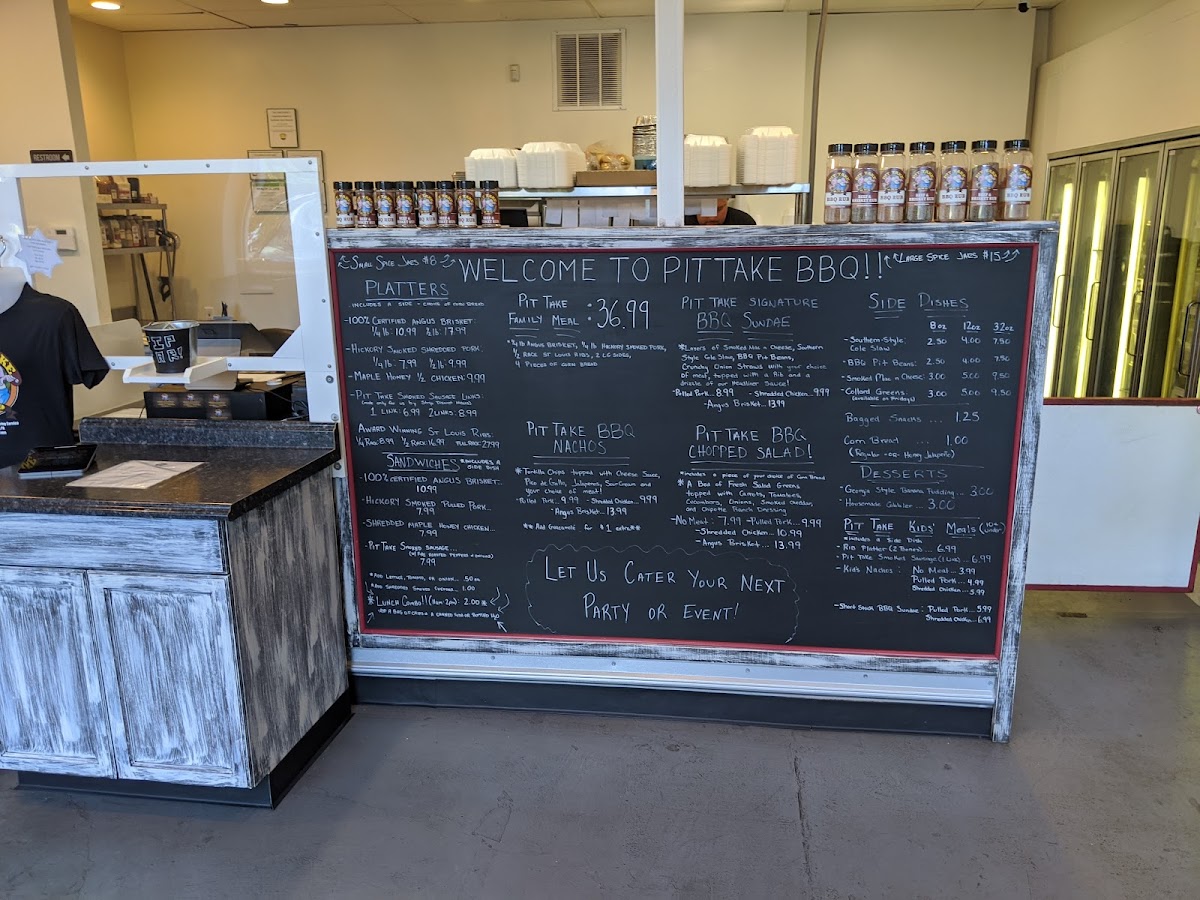 RESTROOM
TIP JAR!
BBQ RUB
Small Spice Jars $8
WELCOME TO PITTAKE BBQ!!
Large Spice Jars $15
PLATTERS
INCLUDES A SIDE - CHOICE OF CORN BREAD
-100% CERTIFIED ANGUS BRISKET:
1/4 lb: 10.99 1/2 lb: 17.99
-HICKORY SMOKED SHREDDED PORK:
1/4 lb: 7.99 1/2 lb: 9.99
-MAPLE HONEY 1/2 CHICKEN: 9.99
-PIT TAKE SMOKED SAUSAGE LINKS:
1 LINK: 6.99 2 LINKS: 8.99
AWARD WINNING ST LOUIS RIBS:
1/4 RACK: 8.99 1/2 RACK: 14.99 FULL RACK: 27.99
SANDWICHES *INCLUDES A SIDE DISH
-100% CERTIFIED ANGUS BRISKET:
10.99
-HICKORY SMOKED PULLED PORK...
7.99
-SHREDDED MAPLE HONEY CHICKEN...
7.99
-PIT TAKE SMOKED SAUSAGE...
7.99
*ADD LETTUCE, TOMATO, OR ONION... .50 ea
*ADD SHREDDED SMOKED CHEDDAR... 1.00
*LUNCH COMBO!! (11am-2pm): 2.00*
PIT TAKE
FAMILY MEAL : 36.99
*3/4 lb ANGUS BRISKET, 3/4 lb HICKORY SMOKED PORK,
1/2 RACK ST LOUIS RIBS, 2 LG SIDES,
4 PIECES OF CORN BREAD
PIT TAKE BBQ
NACHOS
*Tortilla Chips topped with Cheese Sauce,
Pico de Gallo, Jalapenos, Sour Cream and
your choice of meat!
-Pulled Pork... 9.99 -Shredded Chicken... 9.99
-Angus Brisket... 13.99
** Add Guacamole for $1 extra**
PIT TAKE SIGNATURE
BBQ SUNDAE
*Layers of Smoked Mac n Cheese, Southern
Style Cole Slaw, BBQ Pit Beans,
Crunchy Onion Straws with your choice
of meat, topped with a Rib and a
drizzle of our Headliner Sauce!
-Pulled Pork... 8.99 -Shredded Chicken... 9.99
-Angus Brisket... 13.99
PIT TAKE BBQ
CHOPPED SALAD!
*includes a piece of your choice of Corn Bread
*A Bed of Fresh Salad Greens
topped with Carrots, Tomatoes,
Cucumbers, Onions, Smoked Cheddar,
and Chipotle Ranch Dressing
-No Meat: 7.99 -Pulled Pork... 9.99
-Shredded Chicken... 10.99
-Angus Brisket... 13.99
LET US CATER YOUR NEXT
PARTY OR EVENT!
SIDE DISHES
8oz 12oz 32oz
-Southern-Style: Cole Slaw 2.50 4.00 7.50
-BBQ Pit Beans: 2.50 4.00 7.50
-Smoked Mac n Cheese: 3.00 5.00 9.50
-Collard Greens: 3.00 5.00 9.50
(available on Fridays)
Bagged Snacks ... 1.25
Corn Bread ... 1.00
(Regular -or- Honey Jalapeño)
DESSERTS
-Georgia Style Banana Pudding... 3.00
-Homemade Cobbler... 3.00
PIT TAKE KIDS' MEALS (10+ under)
*includes a Side Dish
-Rib Platter (2 Bones)... 6.99
-Pit Take Smoked Sausage (1 Link)... 6.99
-Kid's Nachos: No Meat... 3.99
Pulled Pork... 4.99
Shredded Chicken... 5.99
-Short Stack BBQ Sundae: Pulled Pork... 5.99
Shredded Chicken... 6.99